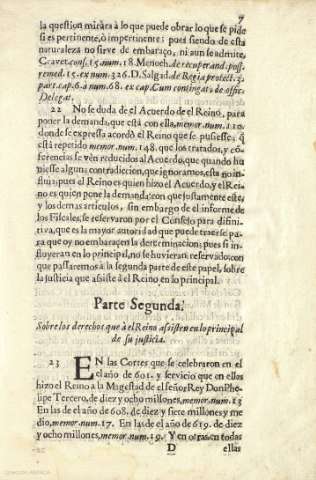 9
la question mirara à lo que puede obrar lo que se pide
si es pertinente, ò impertinente; pues siendo de esta
naturaleza no sirve de embaraço, ni aun se admite,
Cravet. cons. 15. num. 18. Menoch. de recuperand. poss.
remed. 15. ex num. 326. D. Salgad. de Regia protect. 3.
part. cap. 6. à num. 68. ex cap. Cum contingat, de offic.
Delegat.
22 No se duda de el Acuerdo de el Reino, para
poner la demanda, que està con ella, memor. num. 120.
donde se expressa acordò el Reino que se pusiesse, q̃
està repetido memor. num. 148. que los tratados, y cõ-
ferencias se vèn reducidos al Acuerdo, que quando hu-
viesse alguna contradicion, que ignoramos, esta no in-
fluìa; pues el Reino es quien hizo el Acuerdo, y el Rei-
no es quien pone la demanda: con que justamente este,
y los demas articulos, sin embargo de el informe de
los Fiscales, se reservaron por el Consejo para difini-
tiva, que es la mayor autoridad que puede traerse pa-
ra que oy no embaraçen la determinacion; pues si in-
fluyeran en lo principal, no se huvieran reservado: con
que passaremos à la segunda parte de este papel, sobre
la justicia que assiste à el Reino en lo principal.
Parte Segunda;
Sobre los derechos que à el Reino assisten en lo principal
de su justicia.
23 EN las Cortes que se celebraron en el
el año de 601. y servicio que en ellas
hizo el Reino a la Magestad de el señor Rey Don Phe-
lipe Tercero, de diez y ocho millones, memor. num. 13
En las de el año de 608. de diez y siete millones y me-
dio, memor. num. 17. En las de el año de 619. de diez
y ocho millones, memor. num. 19. Y en otras, en todas
D ellas